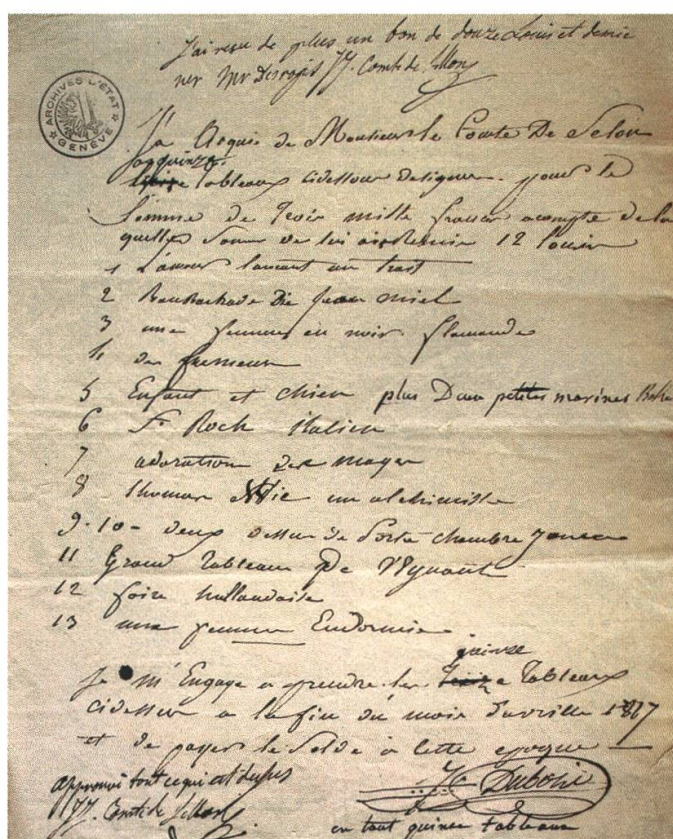 J'ai reçu de plus un bon de douze Louis et demie
par Mr Desrogis JJ. Comte de Sellon
ARCHIVES L'ETAT
GENEVE
J'ai Acquis de Monsieur le Comte De Selon
quinze
tableaux cidessous designer pour le
Somme de Trois mille francs acompte de la
quelle Somme 12 louis
1 L'amour lancant un trait
2 De jean miel
3 une femme en noir flamande
4 des fumeurs
5 Enfant et chien plus Deux petites marines
6 St Rock italien
7 adoration des mages
8 thomas un alchimiste
9-10- deux dessus de Porte chambre jaune
11 Grand tableau De Wynants
12 foire hollandaise
13 une femme Endormie
quinze
Je m'Engage a prendre les Tableaux
cidessus a la fin du mois d'avrille
et de payer le Solde a cette epoque
approuvé tout ce qui est dessus
JJ. Comte de Sellon
Dubois
en tout quinze tableaux